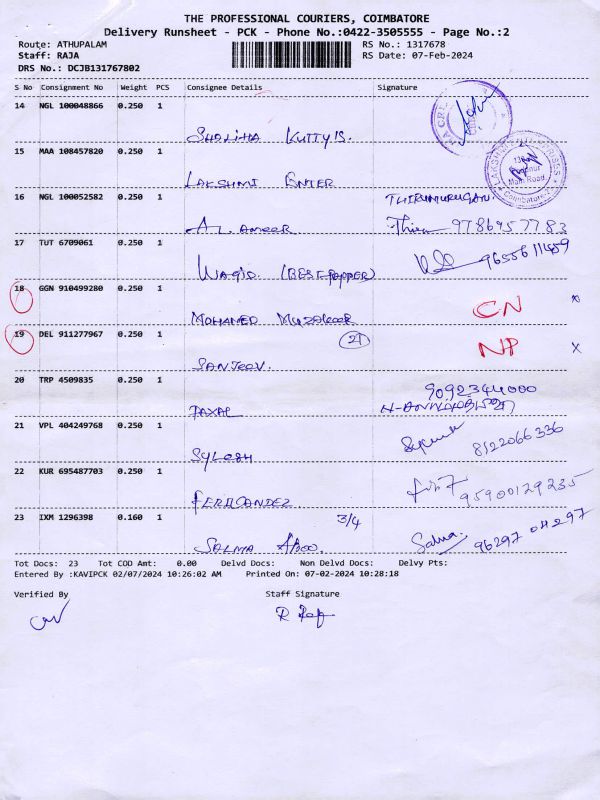 THE PROFESSIONAL COURIERS, COIMBATORE
Delivery Runsheet - PCK - Phone No.:0422-3505555 - Page No.:2
Route: ATHUPALAM
RS No.: 1317678
Staff: RAJA
RS Date: 07-Feb-2024
DRS No.: DCJB131767802
S No Consignment No Weight PCS Consignee Details Signature
14 NGL 100048866 0.250 1
SHALIHA KUTTY B.
15 MAA 108457820 0.250 1
LAKSHMI ENTER
Main Road
Coimbatore
16 NGL 100052582 0.250 1
THIRUMURUGAN
AL. AMEER 9786957783
17 TUT 6709061 0.250 1
WAQID. (BEST PAPPER) 9655611459
18 GGN 910499280 0.250 1
CN x
MOHAMED MUZAKEER
19 DEL 911277967 0.250 1
21 NP x
SANJEEV.
20 TRP 4509835 0.250 1
9092344000
21 VPL 404249768 0.250 1
8122066336
SYLESH
22 KUR 695487703 0.250 1
FERNANDEZ 95900129235
23 IXM 1296398 0.160 1
3/4
SALMA Salma 96297 04297
Tot Docs: 23 Tot COD Amt: 0.00 Delvd Docs: Non Delvd Docs: Delvy Pts:
Entered By :KAVIPCK 02/07/2024 10:26:02 AM Printed On: 07-02-2024 10:28:18
Verified By Staff Signature